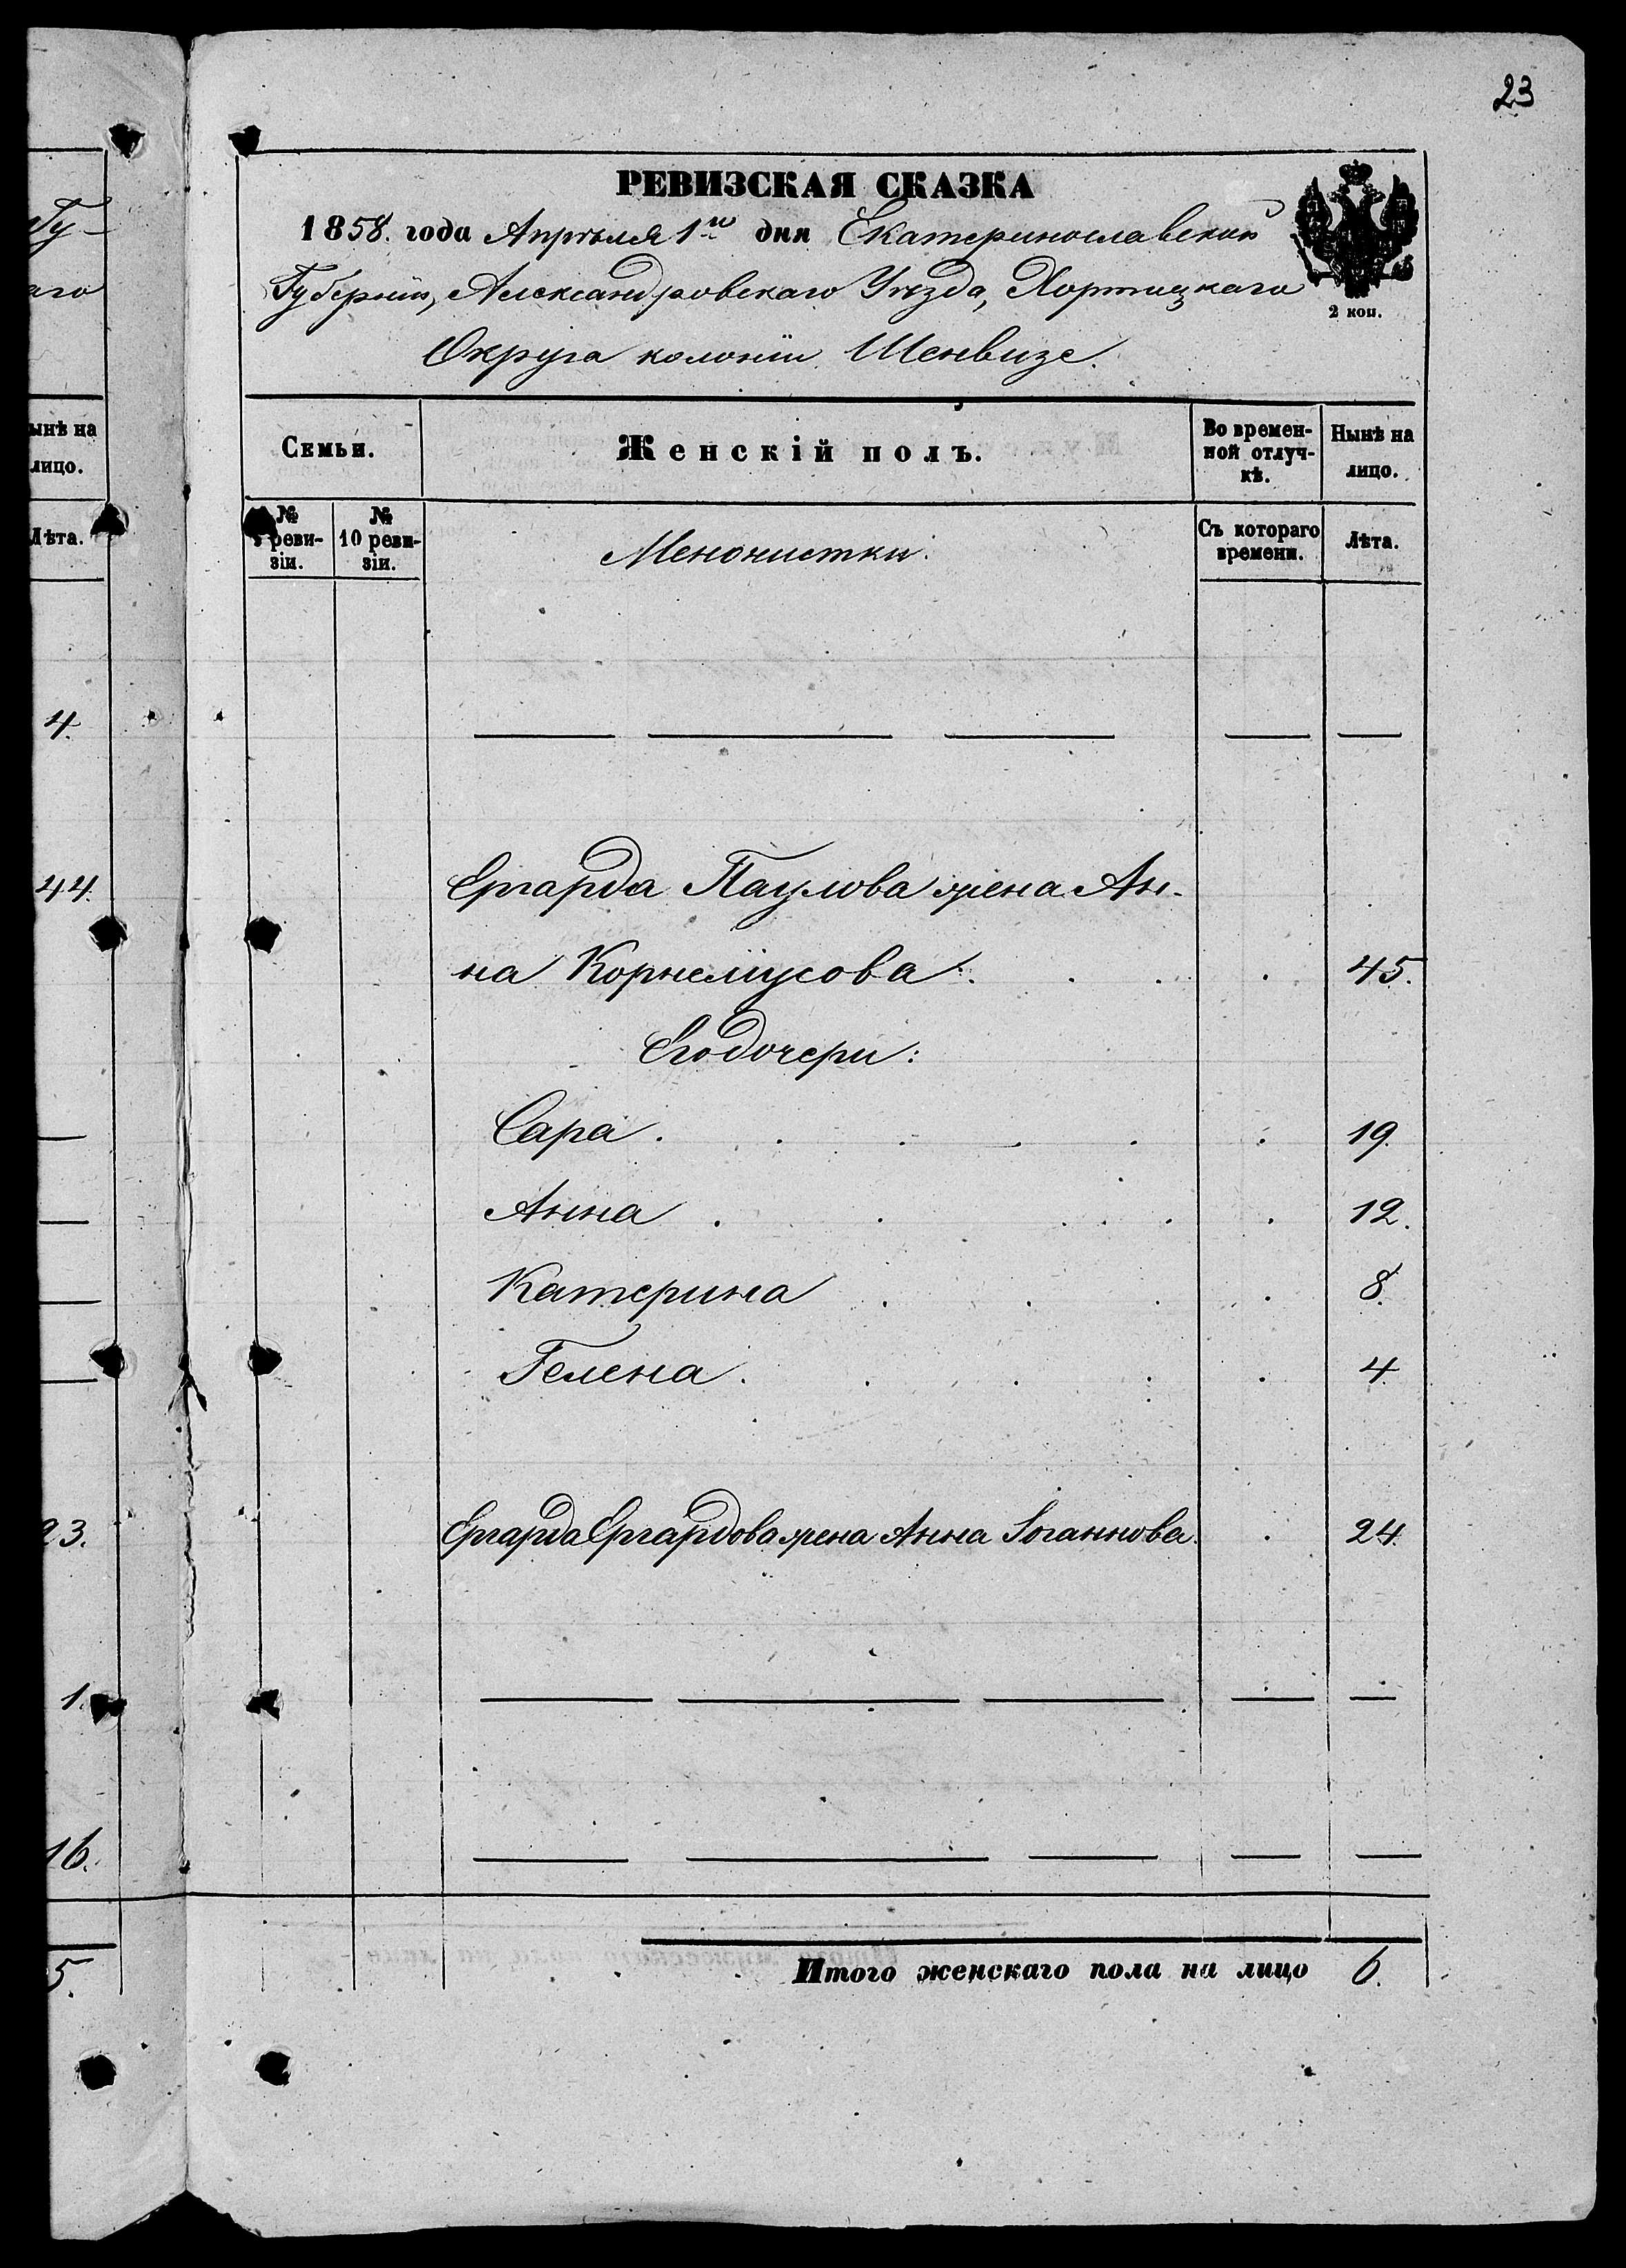 23
РЕВИЗСКАЯ СКАЗКА
1858. года Апрѣля 1го дня Екатеринославской
Губерніи, Александровскаго Уѣзда, Хортицкаго
2 коп.
Округа колоніи Шенвизе.
Семьи. Женскій полъ. Во времен-
ной отлуч-
кѣ. Нынѣ на
лицо.
№
реви-
зіи. №
10 реви-
зіи. Менонистки. Съ котораго
времени. Лѣта.
ынѣ на
лицо.
Лѣта.
4.
44.
Ергарда Паулова жена Ан-
на Корнеліусова. 45.
Его дочери:
Сара. 19.
Анна 12.
Катерина 8.
Гелена. 4.
23.
Ергарда Ергардова жена Анна Іоганнова. 24.
1.
16.
5.
Итого женскаго пола на лицо 6.